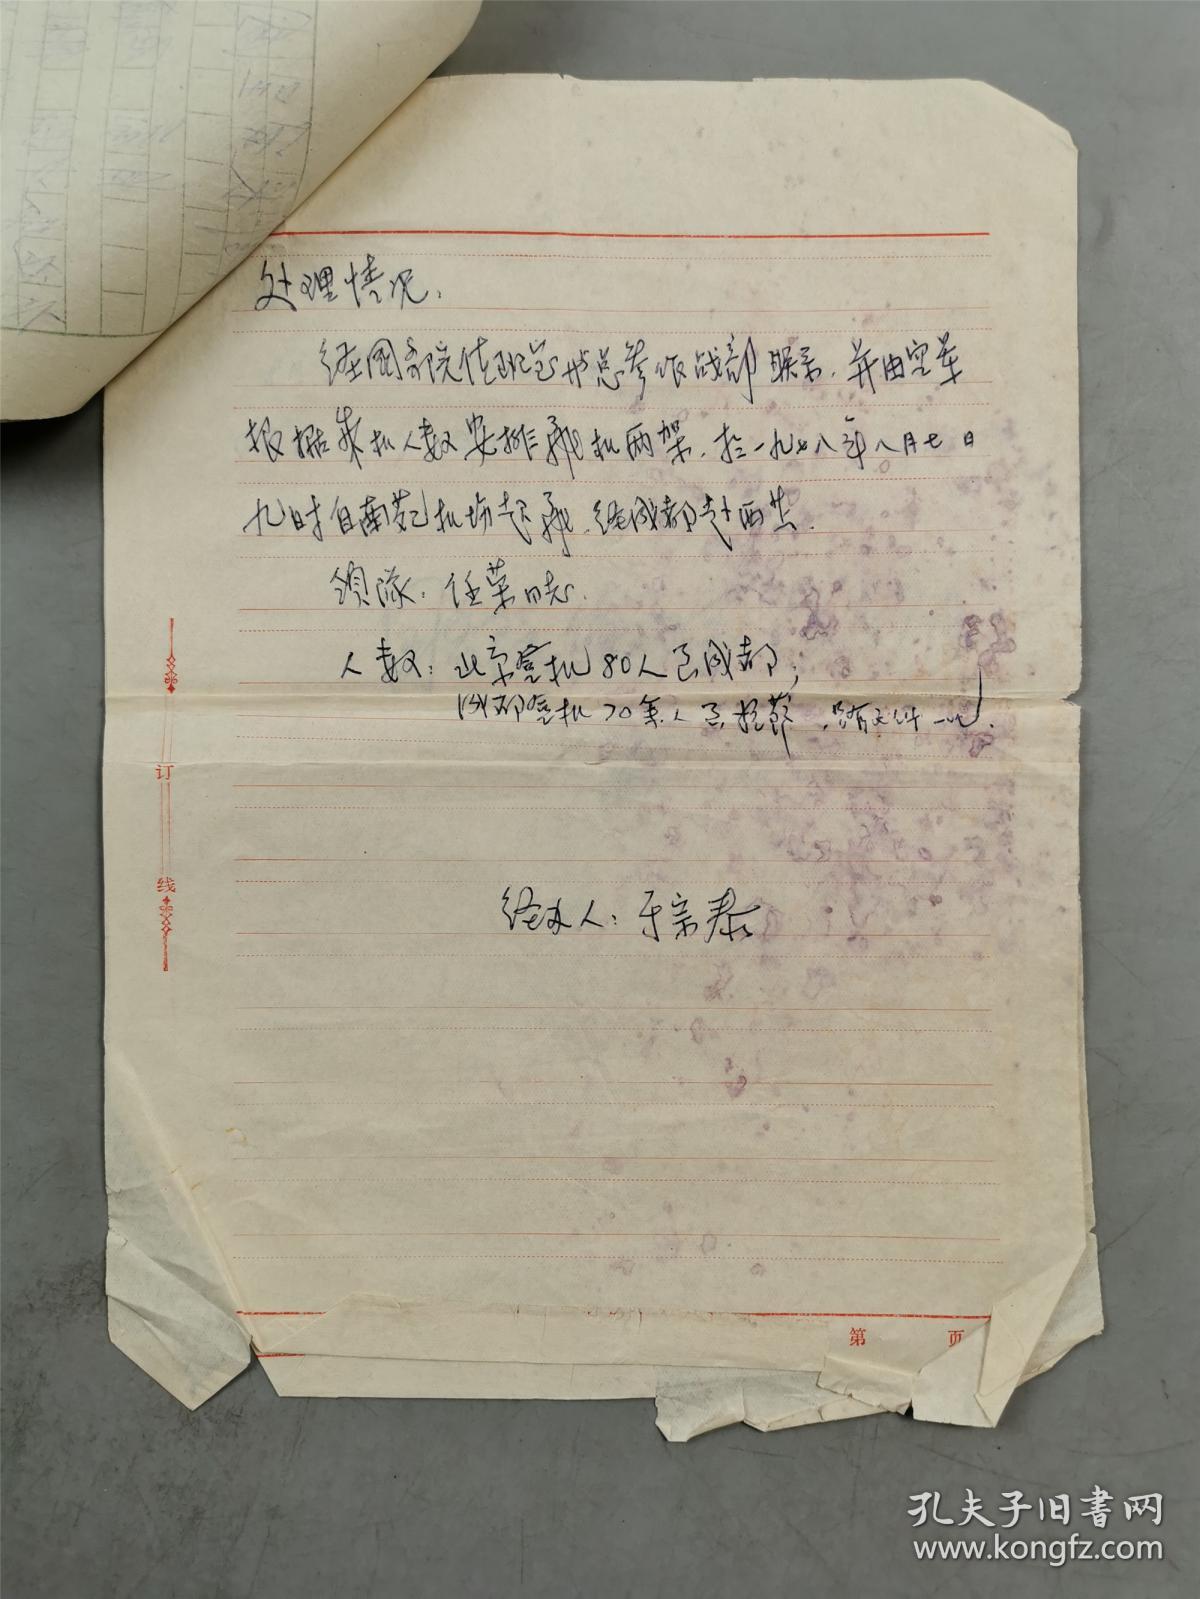 处理情况：
经国务院值班室与总参作战部联系，并由空军
根据乘机人数安排飞机两架，于一九七八年八月七日
九时自南苑机场起飞，经成都赴西芷。
领队：任荣同志。
人数：北京登机80人至成都；
成都登机70余人至拉萨，
经办人：于宗泰
订
线
第 页
孔夫子旧书网
www.kongfz.com